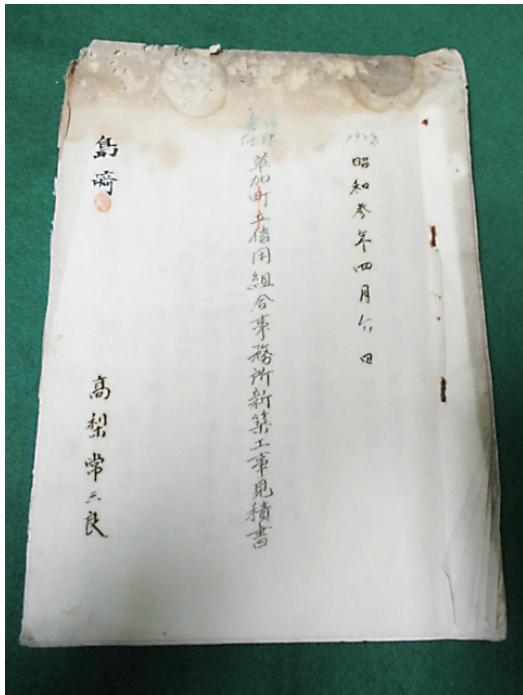 1928
昭和参年四月六日
責任
草加町立信用組合事務所新築工事見積書
島﨑
高梨